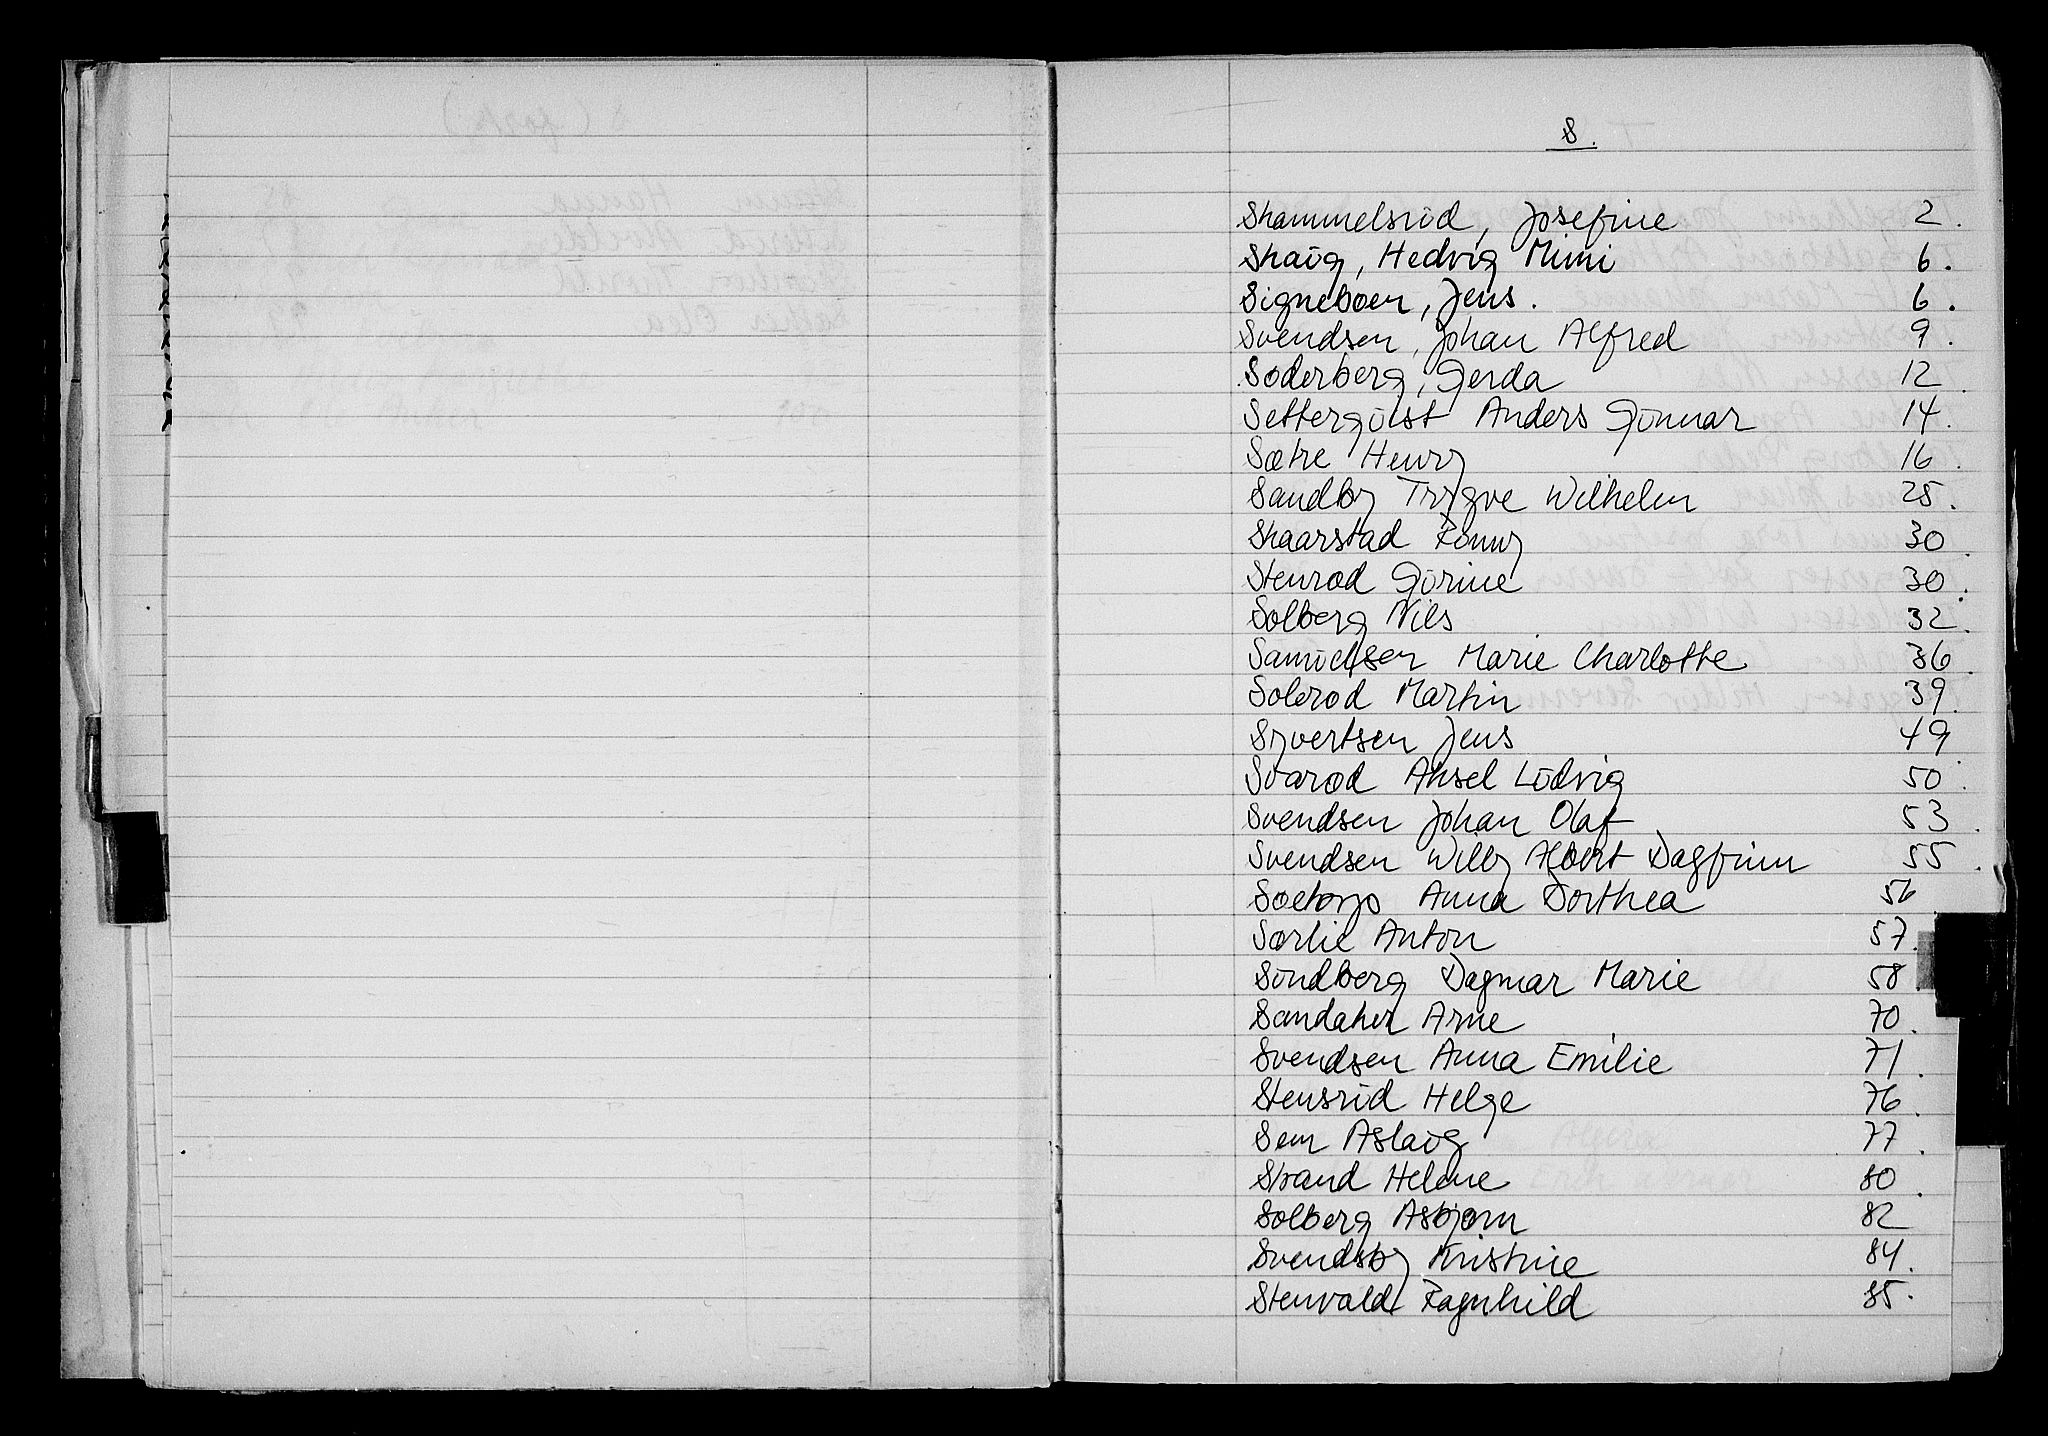 S.
Skammelsrud, Josefine 2.
Skaug, Hedvig Mimi 6.
Signebøen, Jens. 6.
Svendsen, Johan Alfred 9.
Søderberg, Gerda 12.
Setterquist Anders Gunnar 14.
Sætre Henry 16.
Sandby Trygve Wilhelm 25.
Skaarstad Ronny 30.
Stenrød Gurine 30.
Solberg Nils 32.
Samuelsen Marie Charlotte 36.
Solerød Martin 39.
Syvertsen Jens 49.
Svarød Aksel Ludvig 50.
Svendsen Johan Olaf 53.
Svendsen Willy Albert Dagfinn 55.
Soetorp Anna Dorthea 56
Sørlie Anton 57.
Sundberg Dagmar Marie 58.
Sandaker Arne 70.
Svendsen Anna Emilie 71.
Stensrud Helge 76.
Sem Aslaug 77.
Strand Helene 80.
Solberg Asbjørn 82
Svendsby Kristine 84.
Stenvald Ragnhild 85.